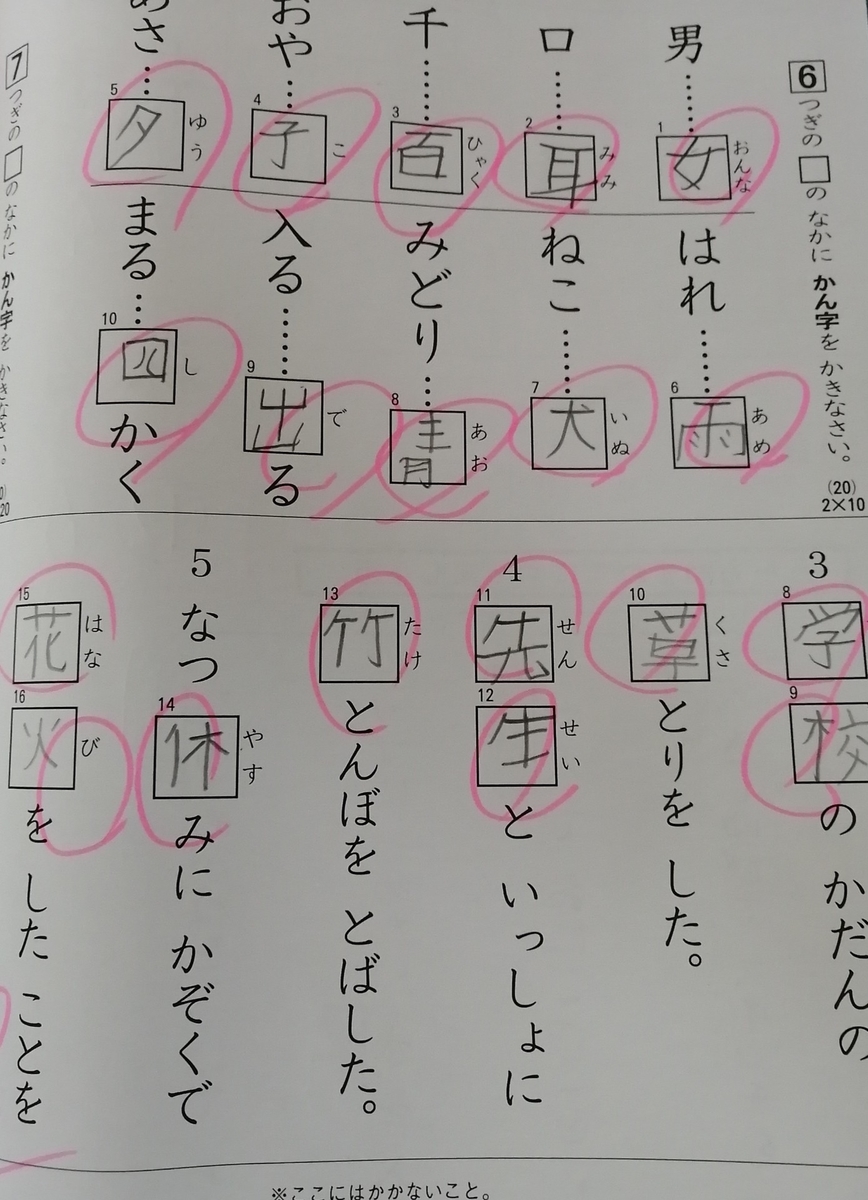 6 つぎの □の なかに かん字を かきなさい。
(20)
2×10
男……女 おんな 1
口……耳 みみ 2
千……百 ひゃく 3
おや……子 こ 4
あさ……夕 ゆう 5
はれ……雨 あめ 6
ねこ……犬 いぬ 7
みどり…青 あお 8
入る……出る で 9
まる…四かく し 10
7 つぎの □の なかに かん字を かきなさい。
20
3 学校の かだんの
8 9
草とりを した。 くさ 10
4 先生と いっしょに せん せい 11 12
竹とんぼを とばした。 たけ 13
5 なつ休みに かぞくで やす 14
花火を した ことを はな び 15 16
※ここにはかかないこと。